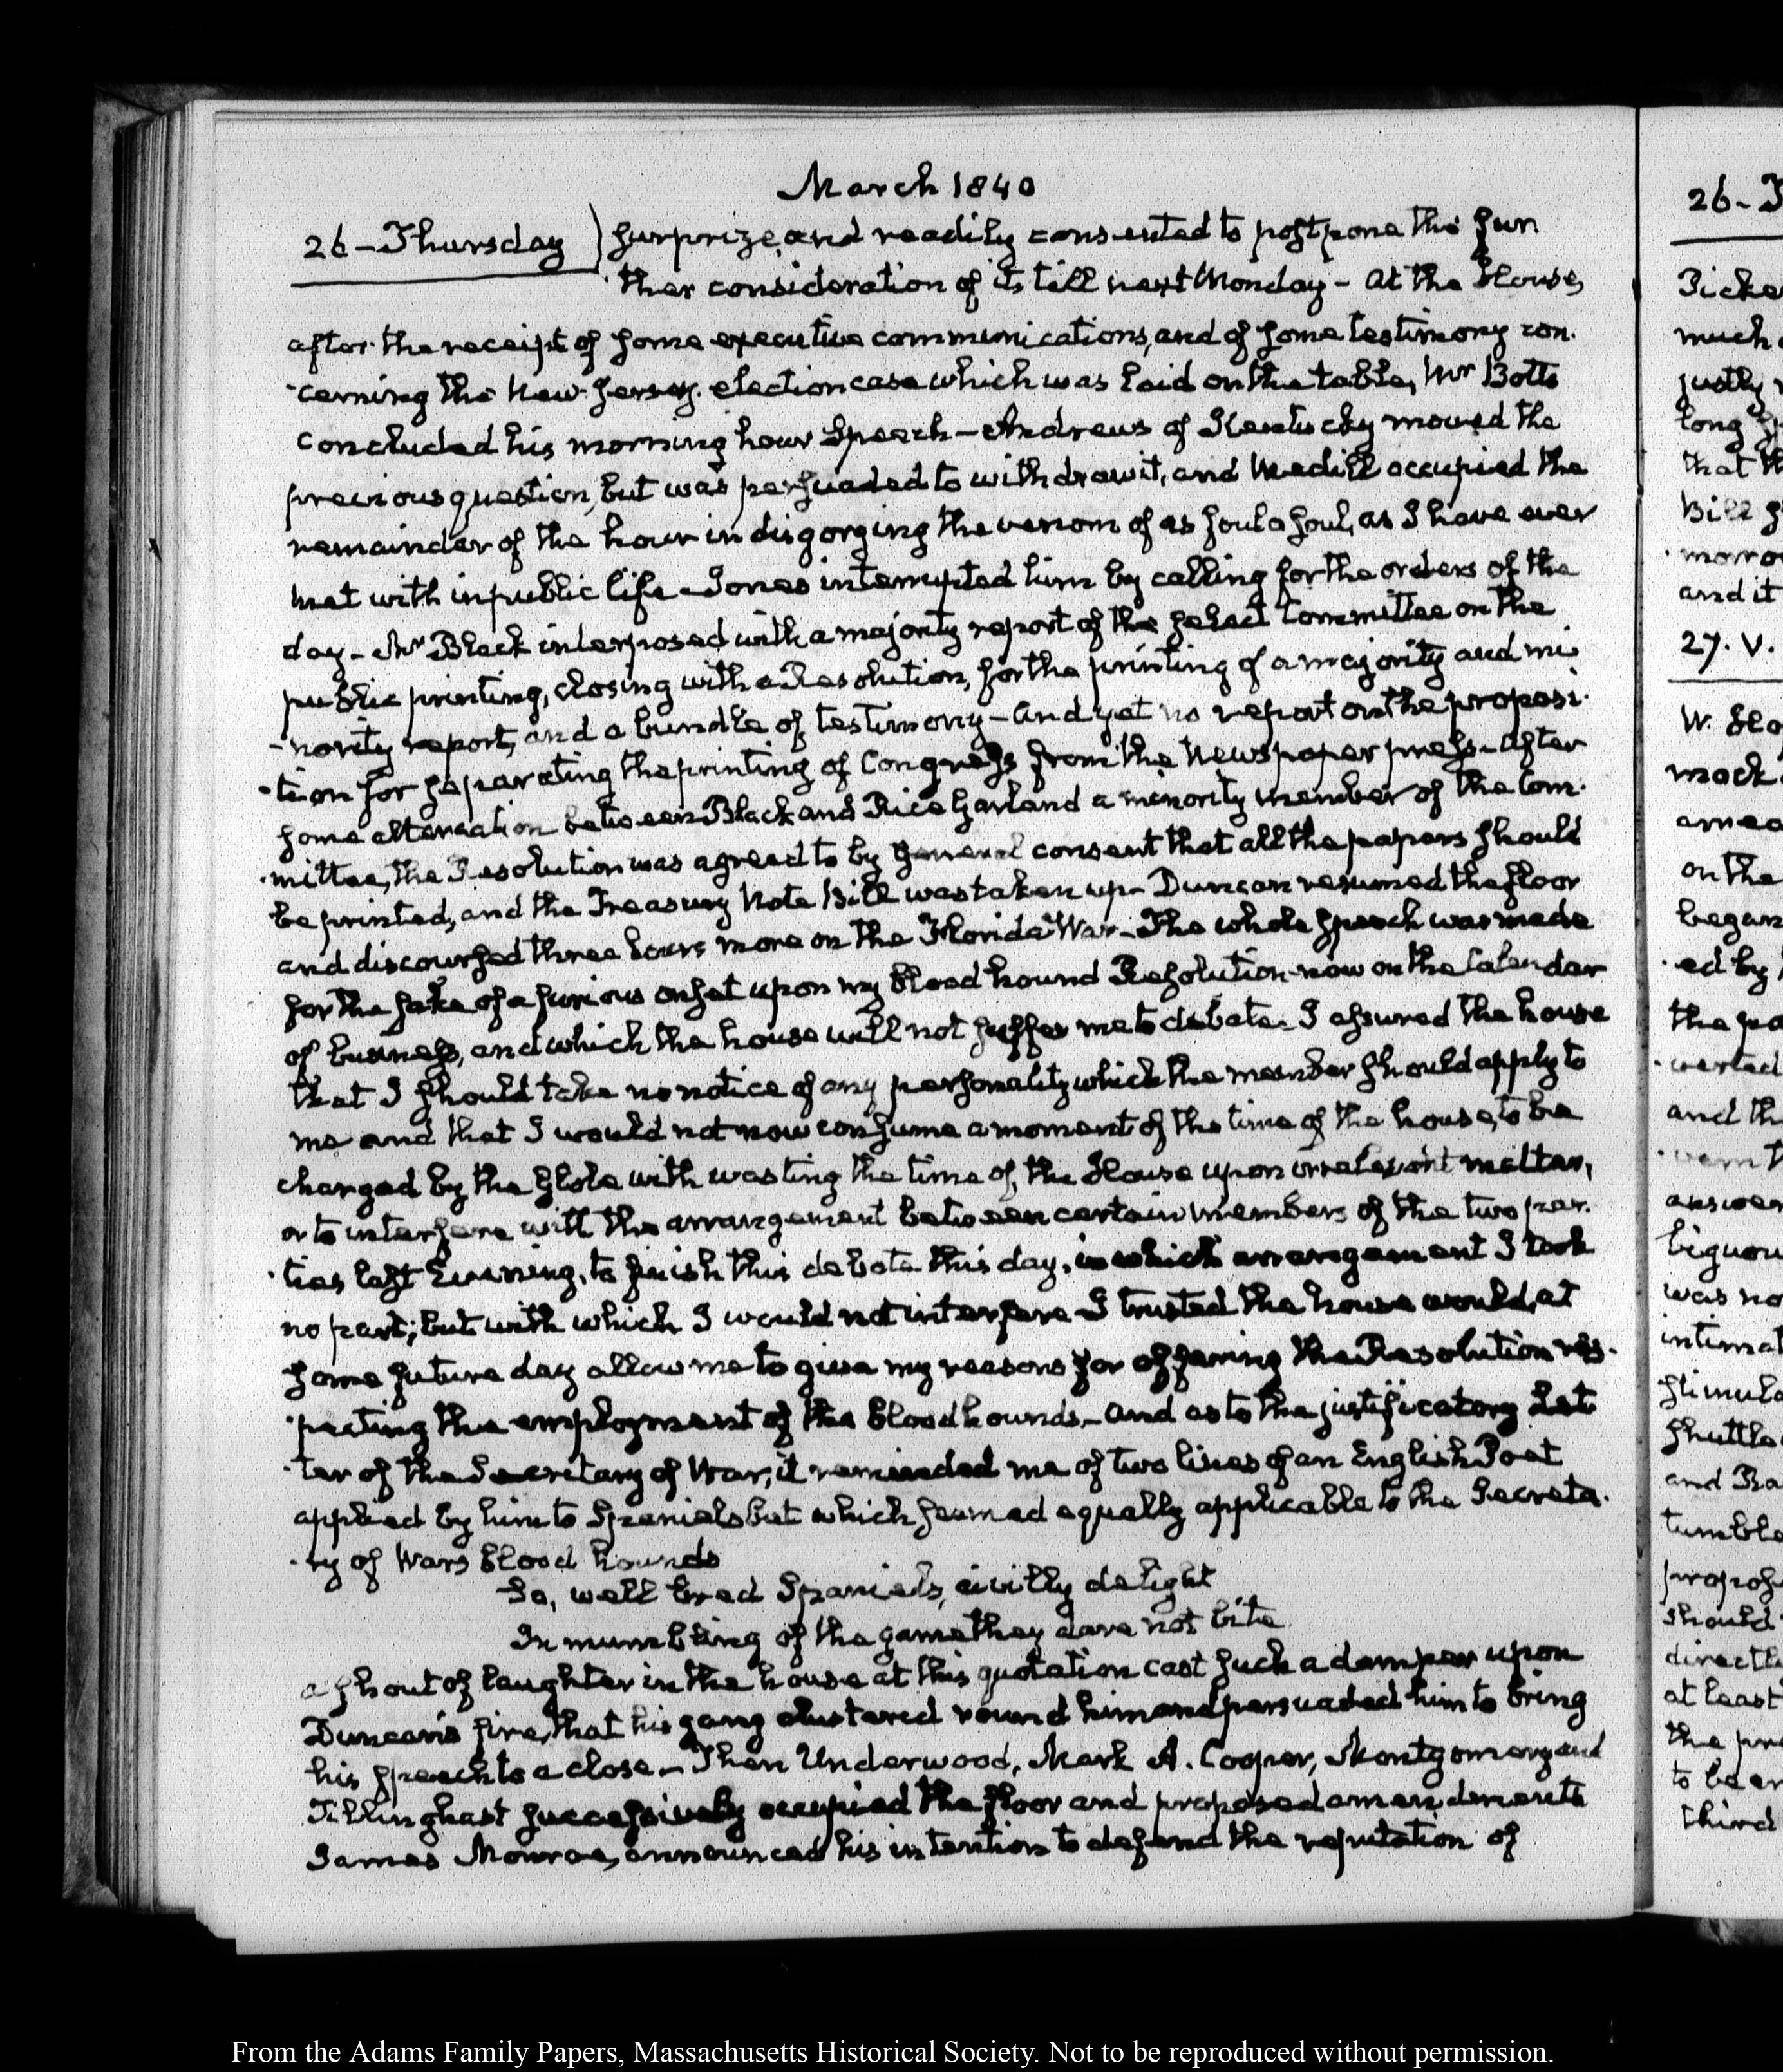 March 1840
26 - Thursday) surprize, and readily consented to postpone the fur
ther consideration of it, till next Monday - At the House,
after the receipt of some executive communications, and of some testimony con-
-cerning the New-Jersey election case which was laid on the table, Mr Botts
concluded his morning hour Speech - Andrews of Kentucky moved the
previous question, but was persuaded to withdraw it, and Medill occupied the
remainder of the hour in disgorging the venom of as foul a soul, as I have ever
met with in public life - Jones interrupted him by calling for the orders of the
day - Mr Black interposed with a majority report of the select Committee on the
public printing, closing with a Resolution, for the printing of a majority and mi
-nority report, and a bundle of testimony - and yet no report on the proposi-
-tion for separating the printing of Congress from the Newspaper press - After
some altercation between Black and Rice Garland a minority member of the Com-
-mittee, the Resolution was agreed to by general consent that all the papers should
be printed, and the Treasury Note Bill was taken up - Duncan resumed the floor
and discoursed three hours more on the Florida War - The whole speech was made
for the sake of a furious onset upon my blood hound Resolution now on the Calendar
of business, and which the house will not suffer me to debate. I assured the house
that I should take no notice of any personality which the member should apply to
me and that I would not now consume a moment of the time of the house, to be
charged by the Globe with wasting the time of the House upon irrelevant matter,
or to interfere with the arrangement between certain members of the two par-
-ties last Evening, to finish this debate this day, in which arrangement I took
no part; but with which I would not interfere - I trusted the house would, at
some future day allow me to give my reasons for offering the Resolution res-
-pecting the employment of the bloodhounds - and as to the justificatory Let
-ter of the Secretary of War, it reminded me of two lines of an English Poet
applied by him to Spaniels but which seemed equally applicable to the Secreta-
-ry of Wars blood hounds
So, well bred Spaniels, civilly delight
In mumbling of the game they dare not bite
a shout of laughter in the house at this quotation cast such a damper upon
Duncan's fire, that his gang clustered round him and persuaded him to bring
his speech to a close - Then Underwood, Mark A. Cooper, Montgomery and
Tillinghast successively occupied the floor and proposed amendments
James Monroe, announced his intention to defend the reputation of
26 - T
much
justly
long
that th
Bill
and it
27. V.
mock
on the
began
ed by
and th
was no
and
tumble
should
at least
third
From the Adams Family Papers, Massachusetts Historical Society. Not to be reproduced without permission.